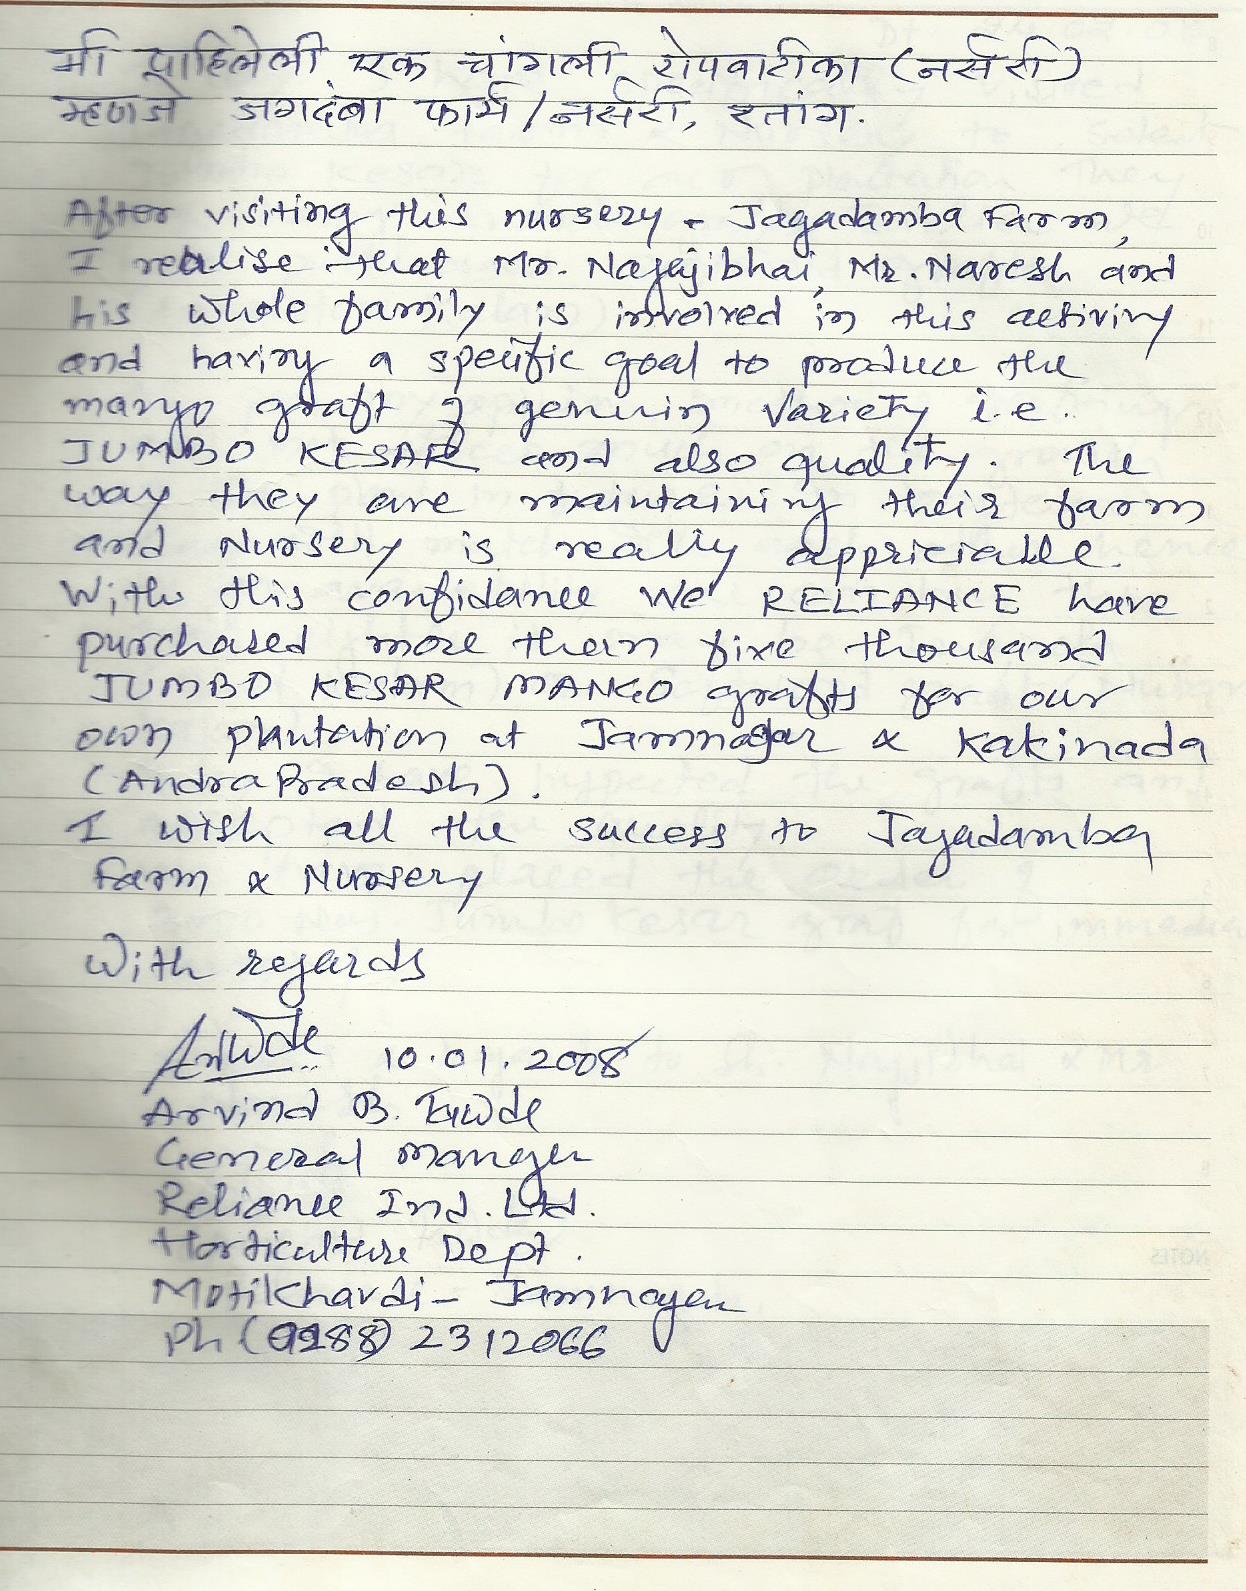 मी पाहिलेली एक चांगली रोपवाटीका (नर्सरी)
म्हणजे जगदंबा फार्म/नर्सरी, रतांग.
After visiting this nursery - Jagadamba Farm,
I realise that Mr. Nagajibhai, Mr. Naresh and
his whole family is involved in this activiry
and having a specific goal to produce the
mango graft of genuin variety i.e.
JUMBO KESAR and also quality. The
way they are maintaining their farm
and Nursery is really appriciable.
With this confidance We RELIANCE have
purchased more then five thousand
JUMBO KESAR MANGO grafts for our
own plantation at Jamnagar & Kakinada
(Andra Pradesh).
I wish all the success to Jagadamba
Farm & Nursery
With regards
10.01.2008
Arvind B.
General Manger
Reliance Ind. Ltd.
Horticulture Dept.
Motikhavdi - Jamnagar
Ph (0288) 2312066